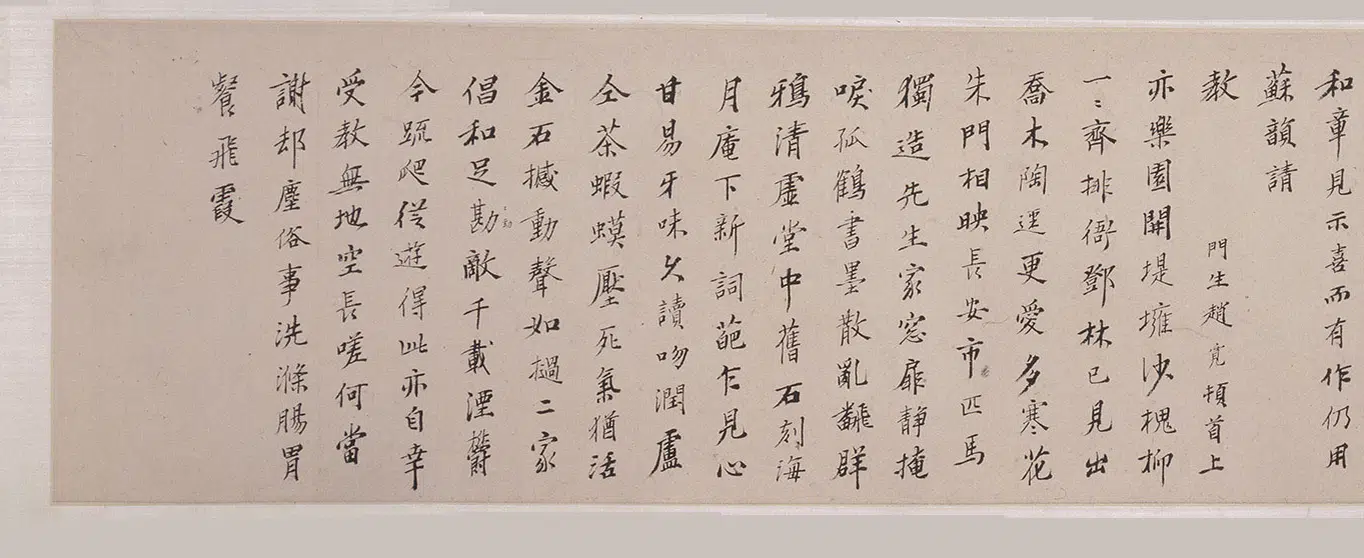 和章見示喜而有作仍用
蘇韻請
教
門生趙寛頓首上
亦樂園開堤壅沙槐柳
一〻齊排衙鄧林已見出
喬木陶逕更愛多寒花
朱門相映長安市匹馬
獨造先生家窓扉静掩
唳孤鶴書墨散亂飜群
鴉清虛堂中舊石刻海
月庵下新詞葩乍見心
甘易牙味久讀吻潤盧
仝茶蝦蟆壓死氣猶活
金石撼動聲如撾二家
倡和足勘敵千載湮欝
今䟽爬從遊得此亦自幸
受教無地空長嗟何當
謝却塵俗事洗滌腸胃
餐飛霞